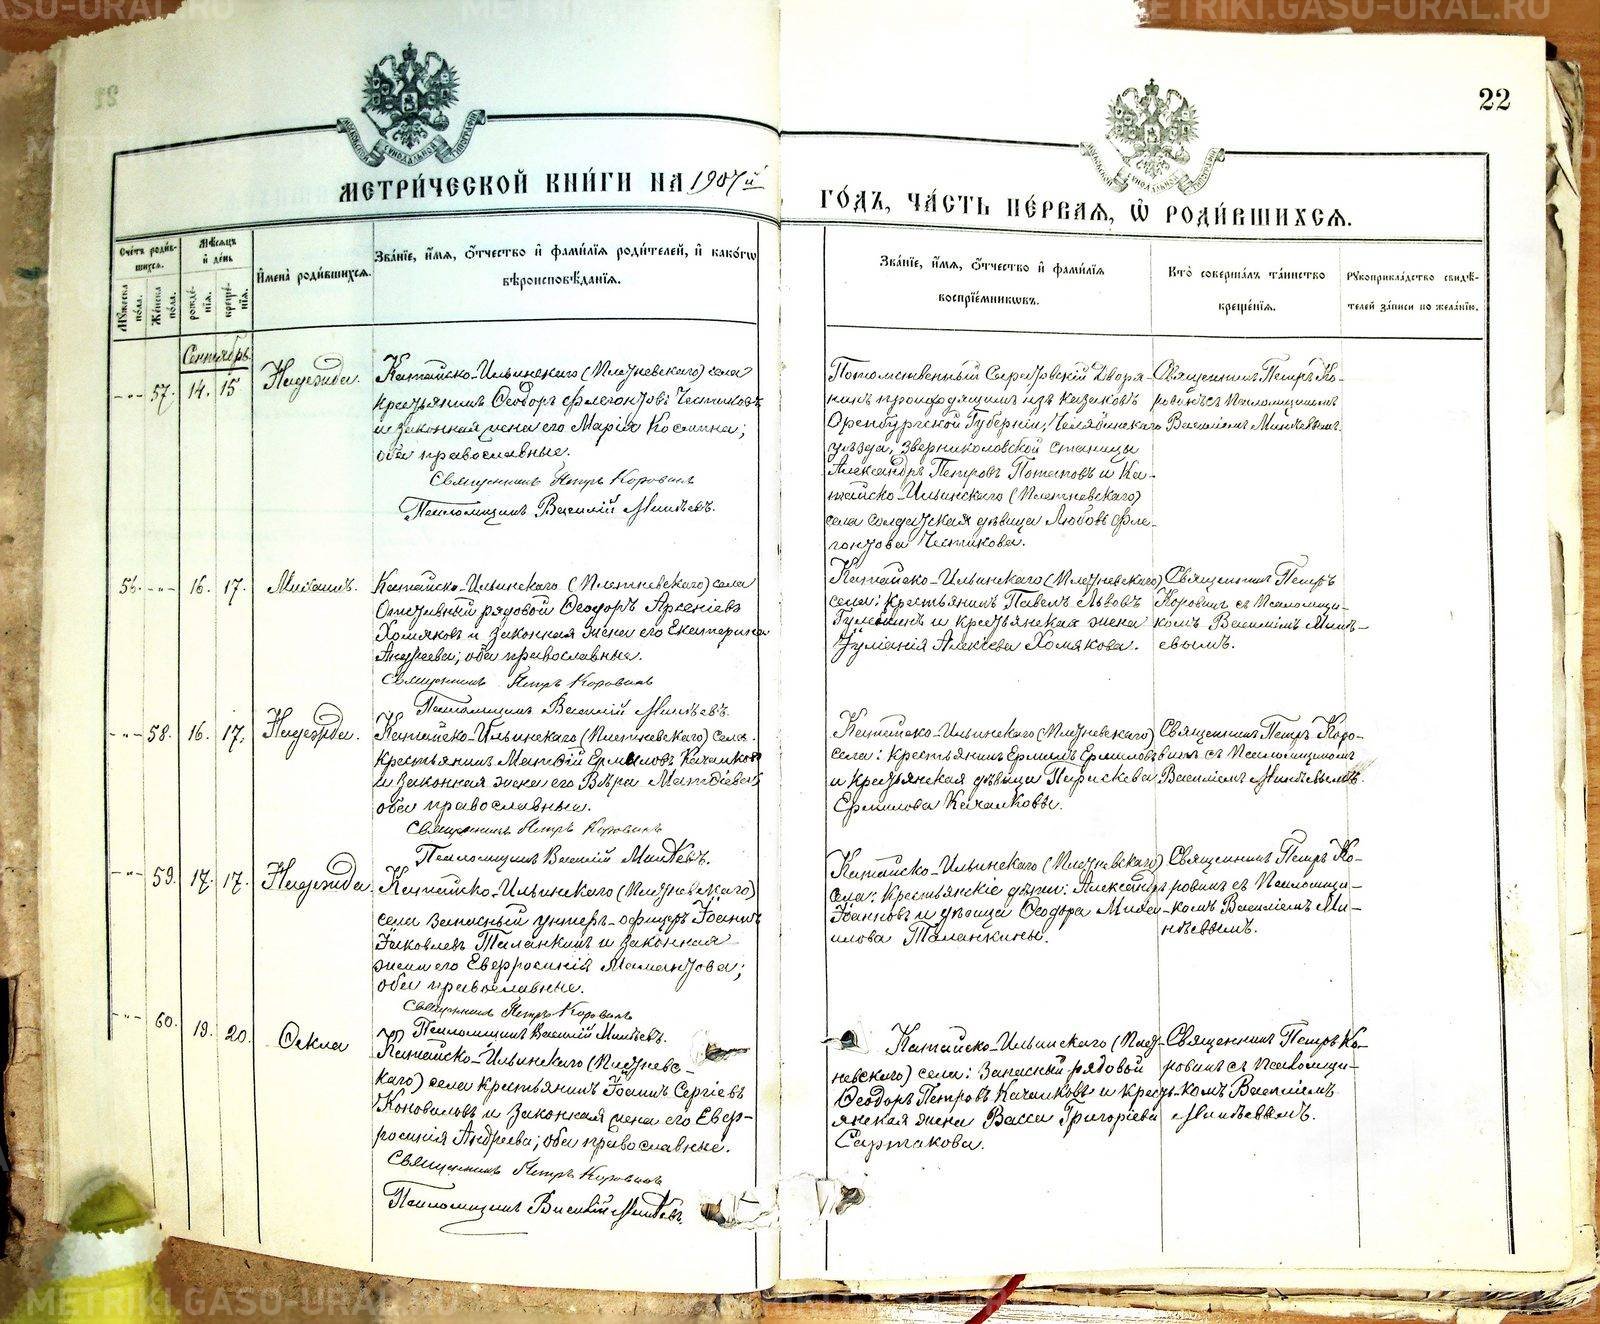 METRIKI.GASU-URAL.RU
22
МОСКОВСКОЙ СѴНОДАЛЬНОЙ ТИПОГРАФІИ
МЕТРИ́ЧЕСКОЙ КНИ́ГИ НА 1907й
ГО́ДЪ, ЧА́СТЬ ПЕ́РВАЯ, Ѡ҆ РОДИ́ВШИХСЯ.
Сче́тъ роди́в-
шихся.
Му́жеска по́ла.
Же́нска по́ла.
Мѣ́сяцъ
и҆ де́нь
рожде́-
нїя.
креще́-
нїя.
И҆мена̀ роди́вшихся.
Зва́нїе, и҆́мя, ѻ҆́тчество и҆ фами́лїя роди́телей, и҆ како́гѡ
вѣроисповѣ́данїя.
Зва́нїе, и҆́мя, ѻ҆́тчество и҆ фами́лїя
воспрїе́мникѡвъ.
Кто̀ соверша́лъ та́инство
креще́нїя.
Рꙋкоприкла́дство свидѣ́-
телей за́писи по жела́нїю.
Сентябрь
57. 14. 15 Надежда.
Катайско-Ильинскаго (Плетневскаго) села
крестьянинъ Ѳеодоръ Флегонтовъ Чистиковъ
и законная жена его Марія Космина;
оба православные.
Священникъ Петръ Коровинъ
Псаломщикъ Василій Минѣевъ.
Потомственный Саратовскій Дворя-
нинъ происходящимъ изъ казаковъ
Оренбургской Губерніи, Челябинскаго
уѣзда, Звериноловской станицы
Александръ Петровъ Потаповъ и Ка-
тайско-Ильинскаго (Плетневскаго)
села солдатская дѣвица Любовь Фле-
гонтова Чистикова.
Священникъ Петръ Ко-
ровинъ съ Псаломщикомъ
Василіемъ Минѣевымъ.
56. 16. 17. Михаилъ.
Катайско-Ильинскаго (Плетневскаго) села
Отставный рядовой Ѳеодоръ Арсеніевъ
Хомяковъ и законная жена его Екатерина
Андреева; оба православные.
Священникъ Петръ Коровинъ
Псаломщикъ Василій Минѣевъ.
Катайско-Ильинскаго (Плетневскаго)
села: Крестьянинъ Павелъ Львовъ
и крестьянская жена
Іуліанія Алексіева Хомякова.
Священникъ Петръ
Коровинъ съ Псаломщи-
комъ Василіемъ Минѣ-
евымъ.
58. 16. 17. Надежда.
Катайско-Ильинскаго (Плетневскаго) села
крестьянинъ Матѳій Ермиловъ Качалковъ
и законная жена его Вѣра Матѳіева;
оба православные.
Священникъ Петръ Коровинъ
Псаломщикъ Василій Минѣевъ.
Катайско-Ильинскаго (Плетневскаго)
села: Крестьянинъ Ермилъ Ермиловъ
и Крестьянская дѣвица Параскева
Ермилова Качалковы.
Священникъ Петръ Коро-
винъ съ Псаломщикомъ
Василіемъ Минѣевымъ.
59. 17. 17. Надежда.
Катайско-Ильинскаго (Плетневскаго)
села запасный унтеръ-офицеръ Іоаннъ
Іаковлевъ Таланкинъ и законная
жена его Евфросинія Мамантова;
оба православные.
Священникъ Петръ Коровинъ
Псаломщикъ Василій Минѣевъ.
Катайско-Ильинскаго (Плетневскаго)
села: Крестьянскіе дѣти: Александръ
Іоанновъ и дѣвица Ѳеодора Миха-
илова Таланкины.
Священникъ Петръ Ко-
ровинъ съ Псаломщи-
комъ Василіемъ Ми-
нѣевымъ.
60. 19. 20. Ѳекла
Катайско-Ильинскаго (Плетневс-
каго) села крестьянинъ Іоаннъ Сергіевъ
Коноваловъ и законная жена его Евф-
росинія Андреева; оба православные.
Священникъ Петръ Коровинъ
Псаломщикъ Василій Минѣевъ.
Катайско-Ильинскаго (Плет-
невскаго) села: Запасный рядовой
Ѳеодоръ Петровъ Качалковъ и крест-
янская жена Васса Григоріева
Сартакова.
Священникъ Петръ Ко-
ровинъ съ Псаломщи-
комъ Василіемъ
Минѣевымъ.
METRIKI.GASU-URAL.RU